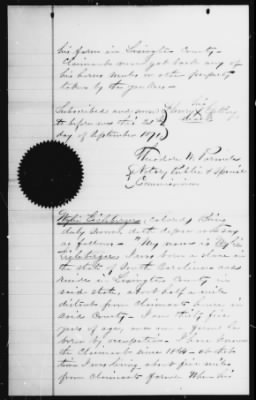 his farm in Lexington County -
Claimants never got back any of
his horses mules or other property
taken by the yankees -
Subscribed and sworn
to before me this 1st
day of September 1871
his
mark
Theodore W. Parmele
Notary Public & Special
Commissioner
(Colored) being
duly sworn doth depose and say
as follows - "My name is
I was born a slave in
the state of South Carolina and
reside in Lexington County in
said state, about half a mile
distant from Claimants house in
said County - I am thirty five
years of age, and am a farmer
by occupation - I have known
the Claimants since 1864 - at that
time I was living about five miles
from Claimants farm. When his